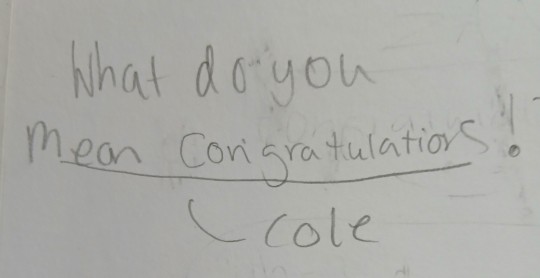 What do you
mean Congratulations!
cole